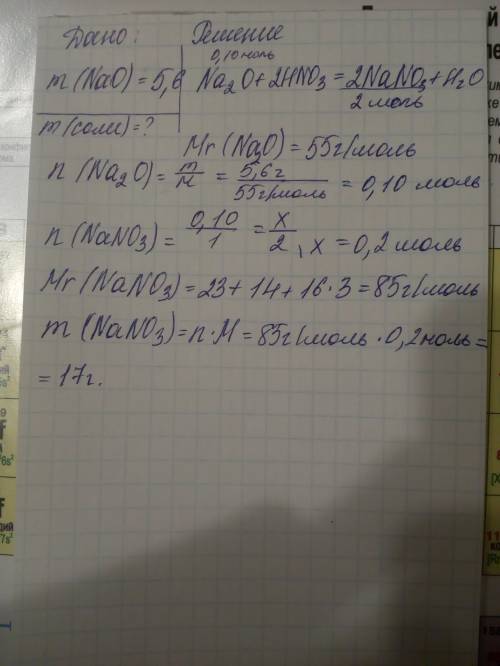 Дано:
Решение
0,10 моль
m(NaO) = 5,6
Na₂O + 2HNO₃ = 2NaNO₃ + H₂O
2 моль
m(соли) = ?
Mr(Na₂O) = 55г/моль
n(Na₂O) = m/M = 5,6г/55г/моль = 0,10 моль
n(NaNO₃) = 0,10/1 = x/2, x = 0,2 моль
Mr(NaNO₃) = 23 + 14 + 16·3 = 85г/моль
m(NaNO₃) = n·M = 85г/моль · 0,2 моль =
= 17г.